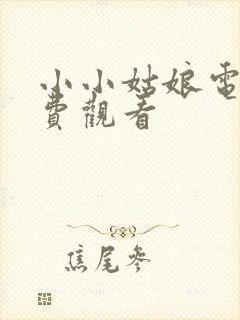 小小姑娘電
費觀看
焦尾參